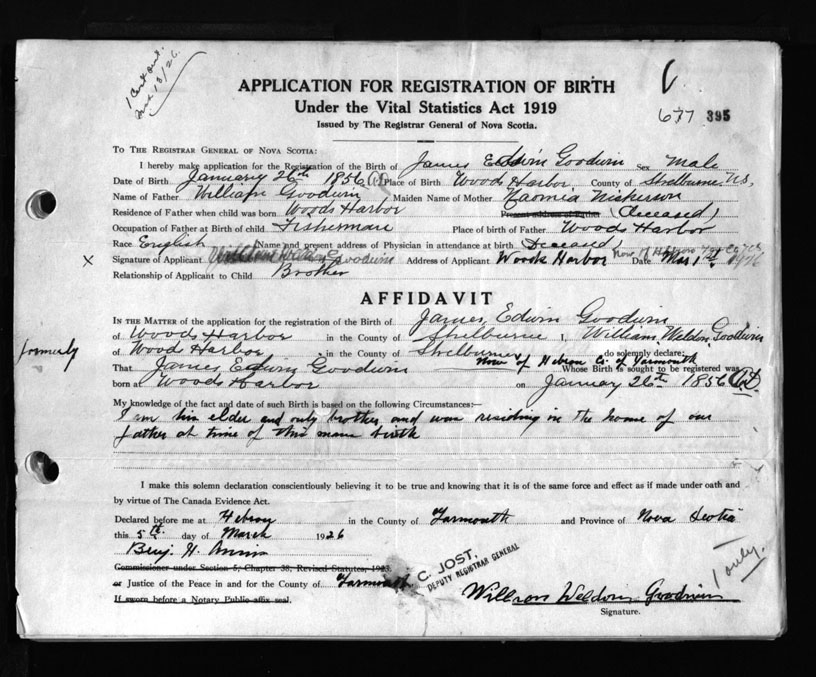 1 Cert out.
Mar 13/26.
APPLICATION FOR REGISTRATION OF BIRTH
Under the Vital Statistics Act 1919
Issued by The Registrar General of Nova Scotia.
677 395
TO THE REGISTRAR GENERAL OF NOVA SCOTIA:
I hereby make application for the Registration of the Birth of James Edwin Goodwin Sex Male
Date of Birth January 26th 1856 Place of Birth Woods Harbor, County of Shelburne, N.S.
Name of Father William Goodwin Maiden Name of Mother Naomia Nickerson
Residence of Father when child was born Woods Harbor Present address of Father (Deceased)
Occupation of Father at Birth of child Fisherman Place of birth of Father Woods Harbor
Race English (Name and present address of Physician in attendance at birth (Deceased)
x Signature of Applicant William Weldon Goodwin Address of Applicant Woods Harbor now of Hebron Date Mar 1st, 1926
Relationship of Applicant to Child Brother
AFFIDAVIT
IN THE MATTER of the application for the registration of the Birth of James, Edwin Goodwin
of Woods Harbor in the County of Shelburne I, William Weldon Goodwin
formerly of Wood Harbor, in the County of Shelburne do solemnly declare:
now of Hebron Co. of Yarmouth
That James Edwin Goodwin Whose Birth is sought to be registered was
born at Woods Harbor on January 26th 1856
My knowledge of the fact and date of such Birth is based on the following Circumstances:—
I am his elder and only brother and was residing in the home of our
father at time of this birth
I make this solemn declaration conscientiously believing it to be true and knowing that it is of the same force and effect as if made under oath and
by virtue of The Canada Evidence Act.
Declared before me at Hebron in the County of Yarmouth and Province of Nova Scotia
this 5th day of March 1926
Benj. H.
Commissioner under Section 5, Chapter 38, Revised Statutes, 1923.
or Justice of the Peace in and for the County of Yarmouth
If sworn before a Notary Public affix seal.
C. JOST,
DEPUTY REGISTRAR GENERAL
1 only.
Willron Weldon Goodwin
Signature.